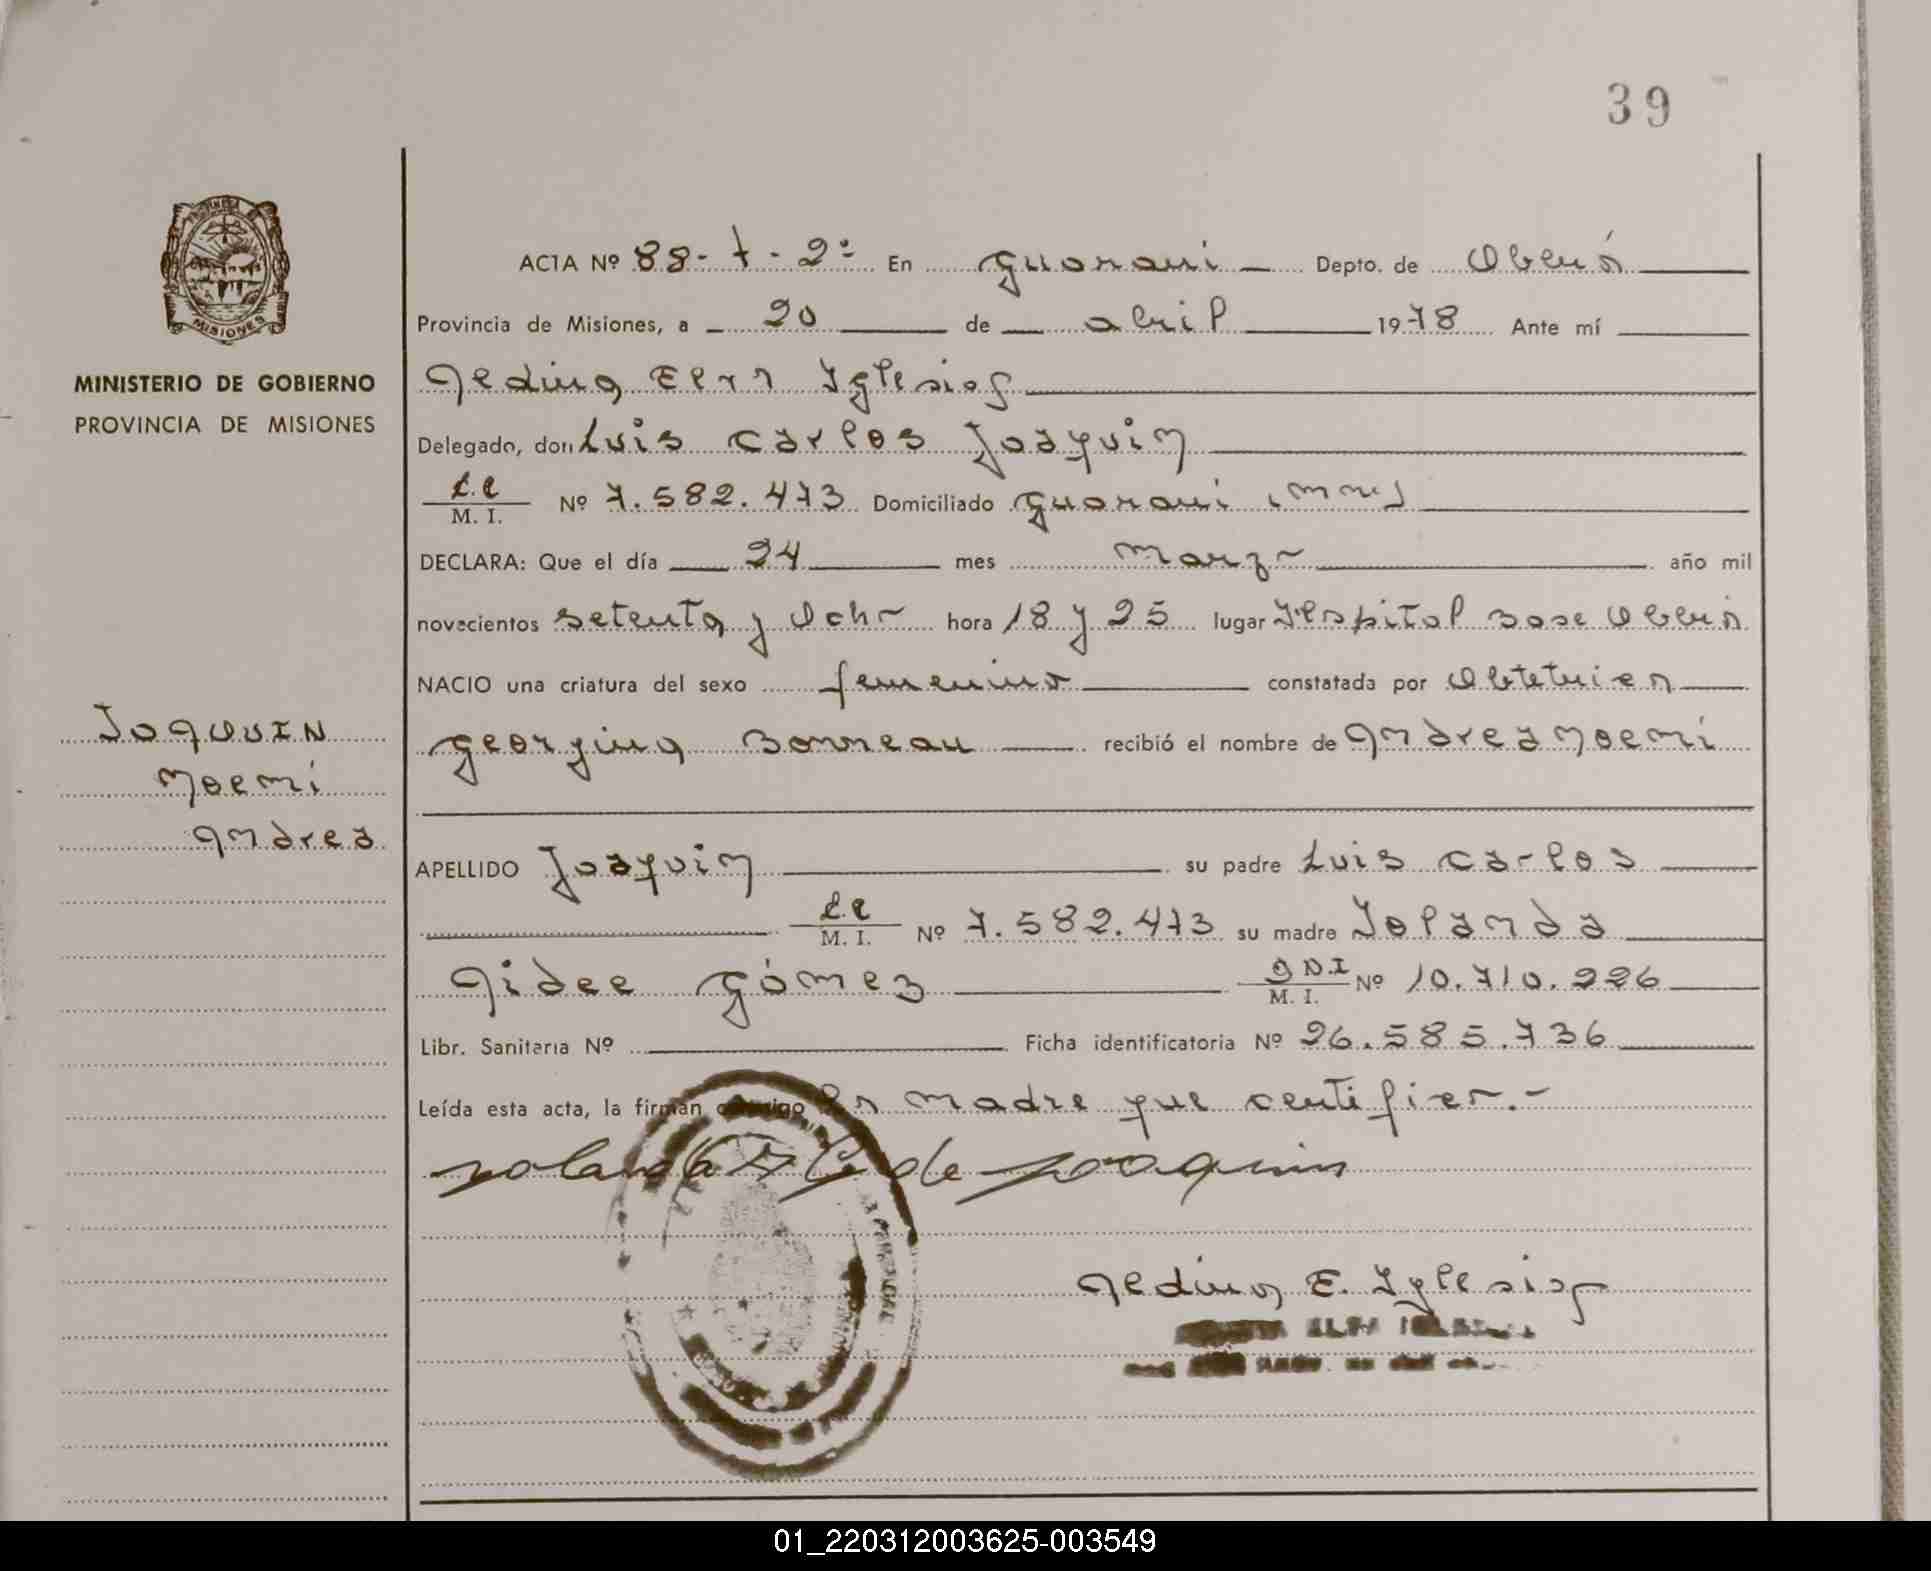 39
PROVINCIA DE
MISIONES
MINISTERIO DE GOBIERNO
PROVINCIA DE MISIONES
JOAQUIN
Noemí
Andrea
ACTA Nº 88-t-2º En Guaraní Depto. de Oberá
Provincia de Misiones, a 20 de abril 1978 Ante mí
Iglesias
Delegado, don Luis Carlos Joaquin
L.E M. I. Nº 7.582.473 Domiciliado Guaraní (Mnes)
DECLARA: Que el día 24 mes marzo año mil
novecientos setenta y ocho hora 18 y 25 lugar Hospital Base Oberá
NACIO una criatura del sexo femenino constatada por Obtetrica
Georgina Bonneau recibió el nombre de Andrea Noemí
APELLIDO Joaquin su padre Luis Carlos
L.E M. I. Nº 7.582.473 su madre Iolanda
Aidee Gómez D.N.I M. I. Nº 10.710.226
Libr. Sanitaria Nº Ficha identificatoria Nº 26.585.736
Leída esta acta, la firman conmigo la madre que certifico.-
Yolanda A G de Joaquin
E. Iglesias